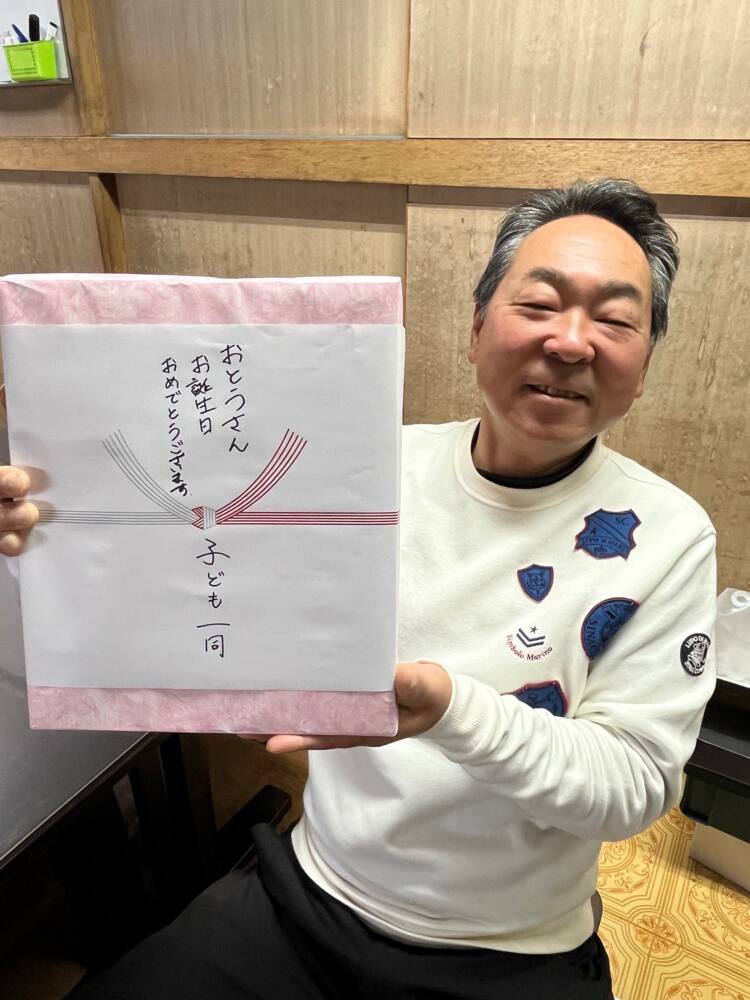 おとうさん
お誕生日
おめでとうございます。
子ども一同
SC
Simbolo Marino